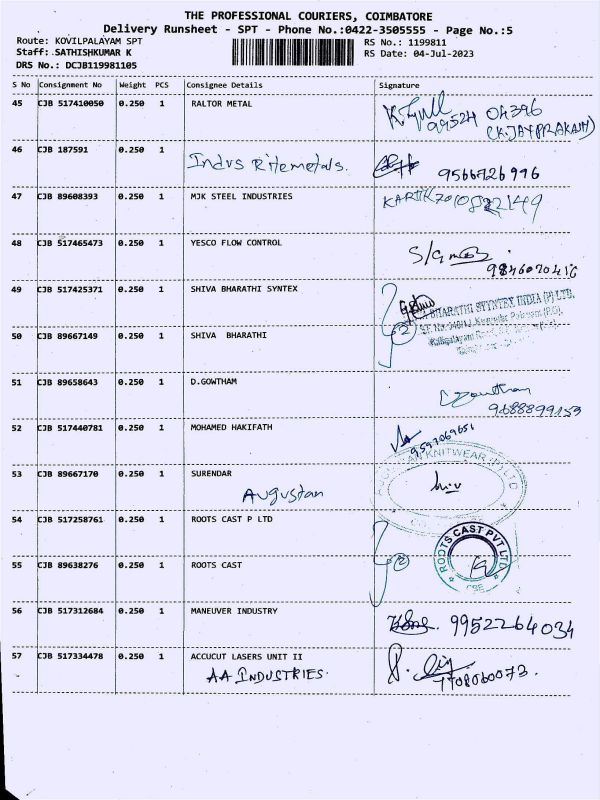 THE PROFESSIONAL COURIERS, COIMBATORE
Delivery Runsheet - SPT - Phone No.:0422-3505555 - Page No.:5
Route: KOVILPALAYAM SPT
RS No.: 1199811
Staff: SATHISHKUMAR K
RS Date: 04-Jul-2023
DRS No.: DCJB119981105
S No Consignment No Weight PCS Consignee Details Signature
45 CJB 517410050 0.250 1 RALTOR METAL
99524 04396
(K.JAYAPRAKASH)
46 CJB 187591 0.250 1
Indus Ritemetals.
9566726996
47 CJB 89608393 0.250 1 MJK STEEL INDUSTRIES
KARTHIK
48 CJB 517465473 0.250 1 YESCO FLOW CONTROL
49 CJB 517425371 0.250 1 SHIVA BHARATHI SYNTEX
BHARATHI SYNTEX INDIA (P) LTD.
50 CJB 89667149 0.250 1 SHIVA BHARATHI
2
51 CJB 89658643 0.250 1 D.GOWTHAM
Gowtham
9688899153
52 CJB 517440781 0.250 1 MOHAMED HAKIFATH
9597069651
53 CJB 89667170 0.250 1 SURENDAR
KNITWEAR (P) LTD
Augustan
54 CJB 517258761 0.250 1 ROOTS CAST P LTD
ROOTS CAST PVT LTD
55 CJB 89638276 0.250 1 ROOTS CAST
2
CBE
56 CJB 517312684 0.250 1 MANEUVER INDUSTRY
9952264034
57 CJB 517334478 0.250 1 ACCUCUT LASERS UNIT II
AA INDUSTRIES.
7708060073.